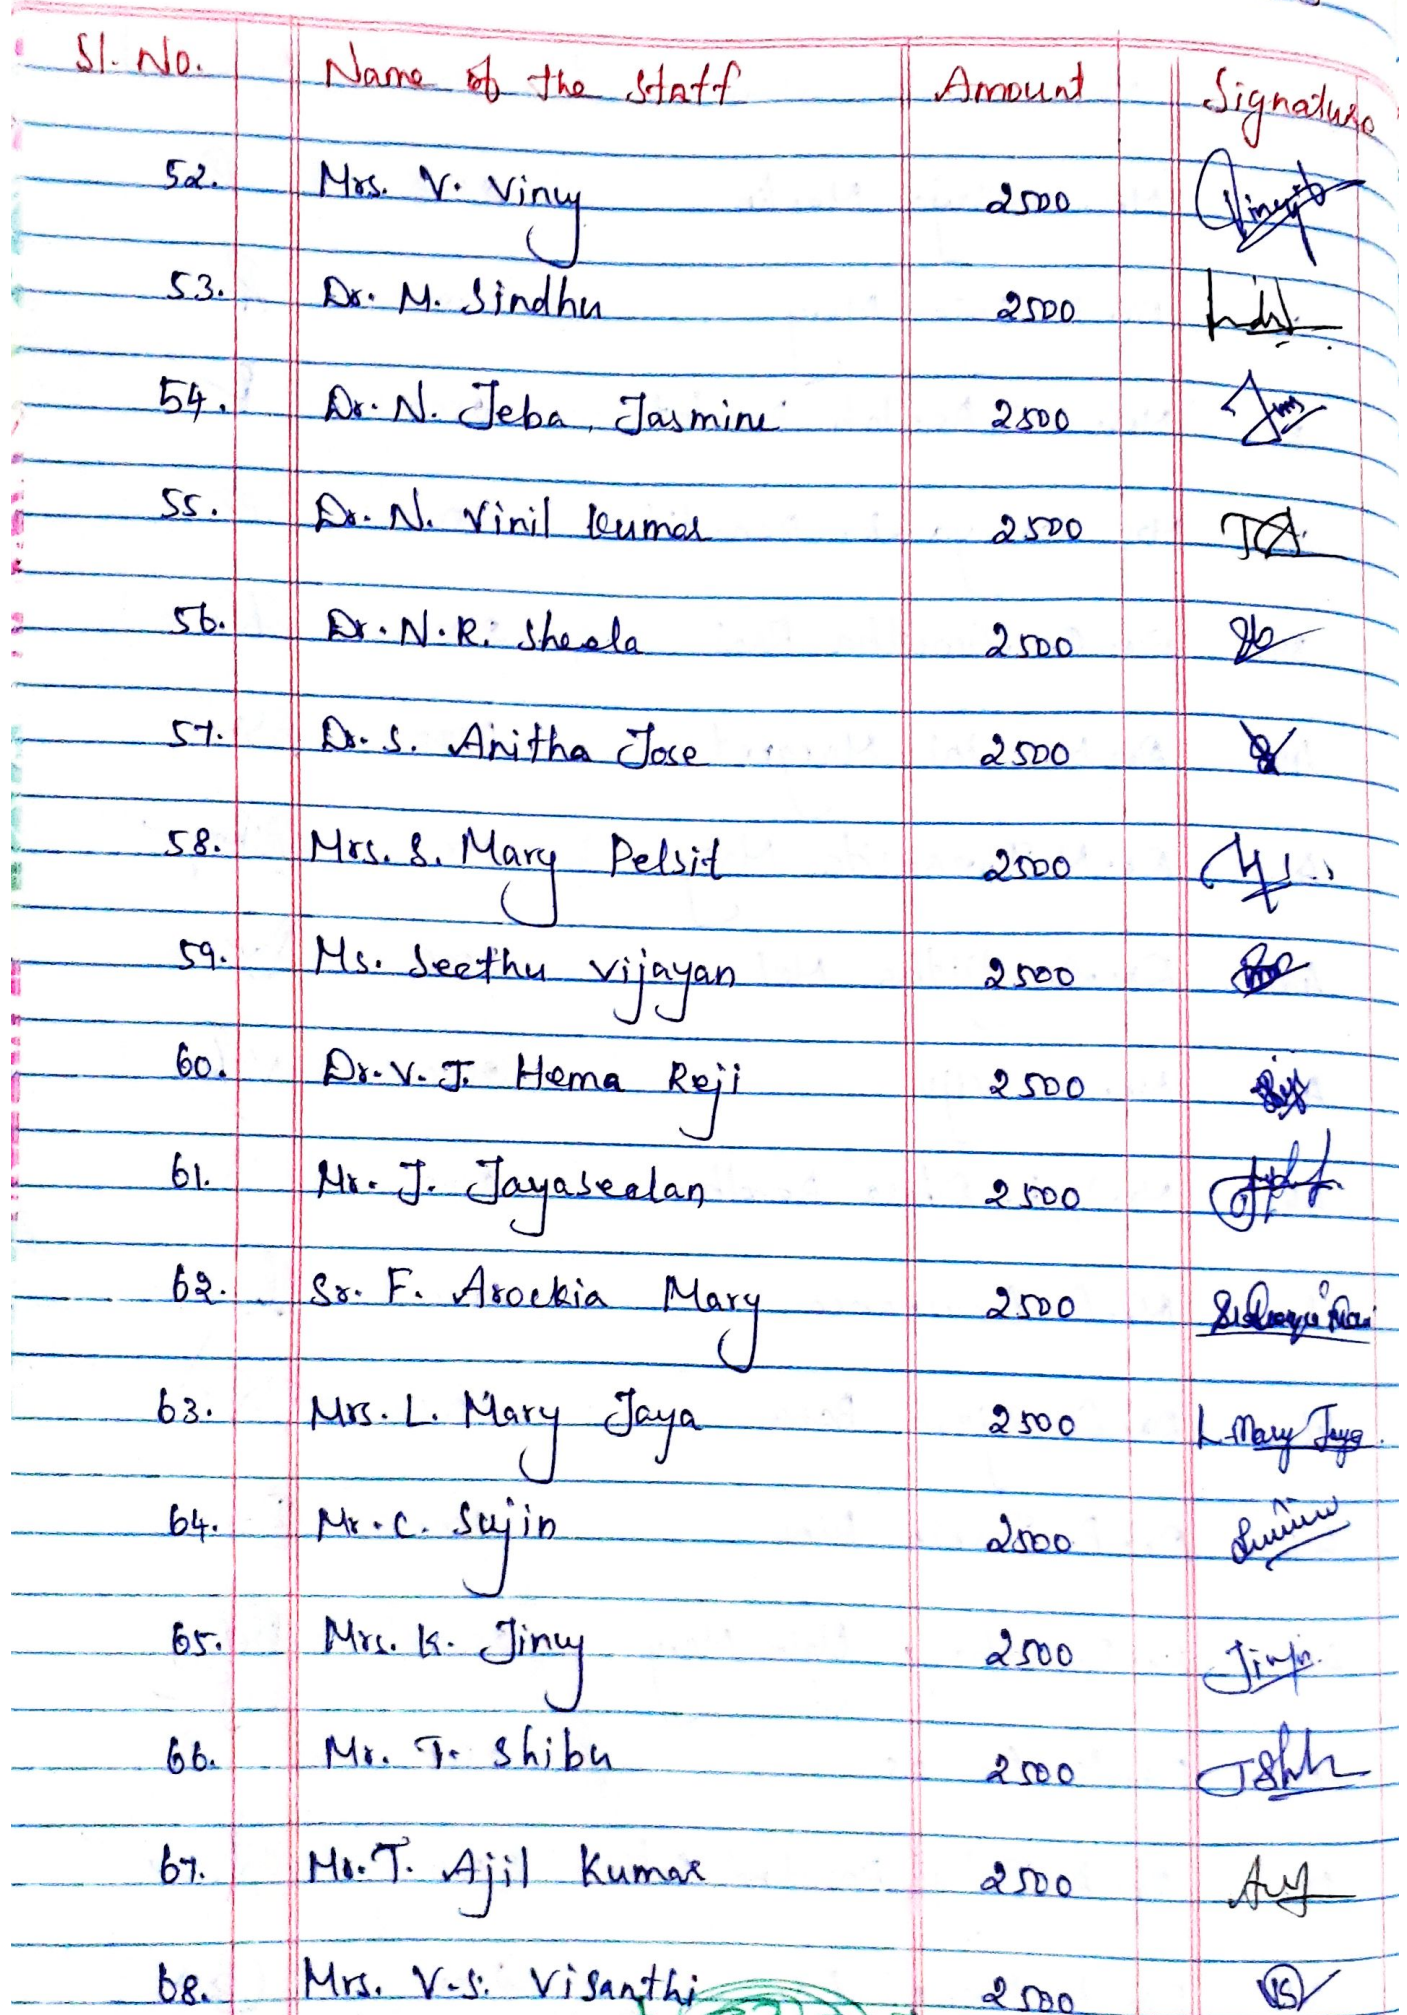 Sl. No. Name of the Staff Amount Signature
52. Mrs. V. Viny 2500
53. Dr. M. Sindhu 2500
54. Dr. N. Jeba Jasmine 2500
55. Dr. N. Vinil Kumar 2500
56. Dr. N. R. Sheela 2500
57. Dr. S. Anitha Jose 2500
58. Mrs. S. Mary Pelsit 2500
59. Ms. Seethu Vijayan 2500
60. Dr. V. J. Hema Reji 2500
61. Mr. J. Jayaseelan 2500
62. Sr. F. Arockia Mary 2500
63. Mrs. L. Mary Jaya 2500 L. Mary Jaya
64. Mr. C. Sujin 2500
65. Mrs. K. Jiny 2500
66. Mr. T. Shibu 2500
67. Mr. T. Ajil Kumar 2500
68. Mrs. V. S. Visanthi 2500